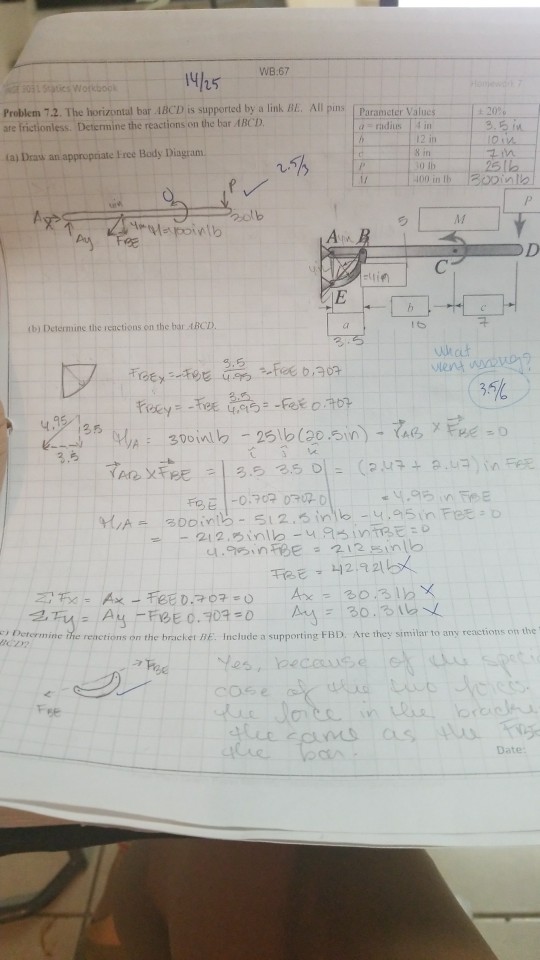 WB:67
14/25
2031 Statics Workbook
Homework 7
Problem 7.2. The horizontal bar ABCD is supported by a link BE. All pins
are frictionless. Determine the reactions on the bar ABCD.
Parameter Values ± 20%
a = radius 4 in 3.5 in
b 12 in 10 in
c 8 in 7 in
P 30 lb 25 lb
M 400 in lb 300 in lb
(a) Draw an appropriate Free Body Diagram.
2.5/3
P
30lb
Ax
Ay
FBE
M=400 in lb
P
M
5
A 4in B
C
D
E
=4in
a
b
c
3.5
10
7
(b) Determine the reactions on the bar ABCD.
what
went wrong?
3.5/6
FBEx = -FBE 3.5/4.95 = -FBE 0.707
FBEy = -FBE 3.5/4.95 = -FBE 0.707
4.95
3.5
3.5
M/A = 300inlb - 25lb(20.5in) - rAB × FBE = 0
i j k
rAB × FBE = | 3.5 3.5 0 | = (2.47 + 2.47) in FBE
FBE | -0.707 0.707 0 | = 4.95 in FBE
M/A = 300inlb - 512.5inlb - 4.95in FBE = 0
= -212.5inlb - 4.95in FBE = 0
4.95in FBE = 212.5inlb
FBE = 42.92lb X
ΣFx = Ax - FBE 0.707 = 0 Ax = 30.3lb X
ΣFy = Ay - FBE 0.707 = 0 Ay = 30.3lb X
c) Determine the reactions on the bracket BE. Include a supporting FBD. Are they similar to any reactions on the
BCD?
FBE
FBE
Yes, because of the
case of the two forces
the force in the
the same as the
the bar.
Date: